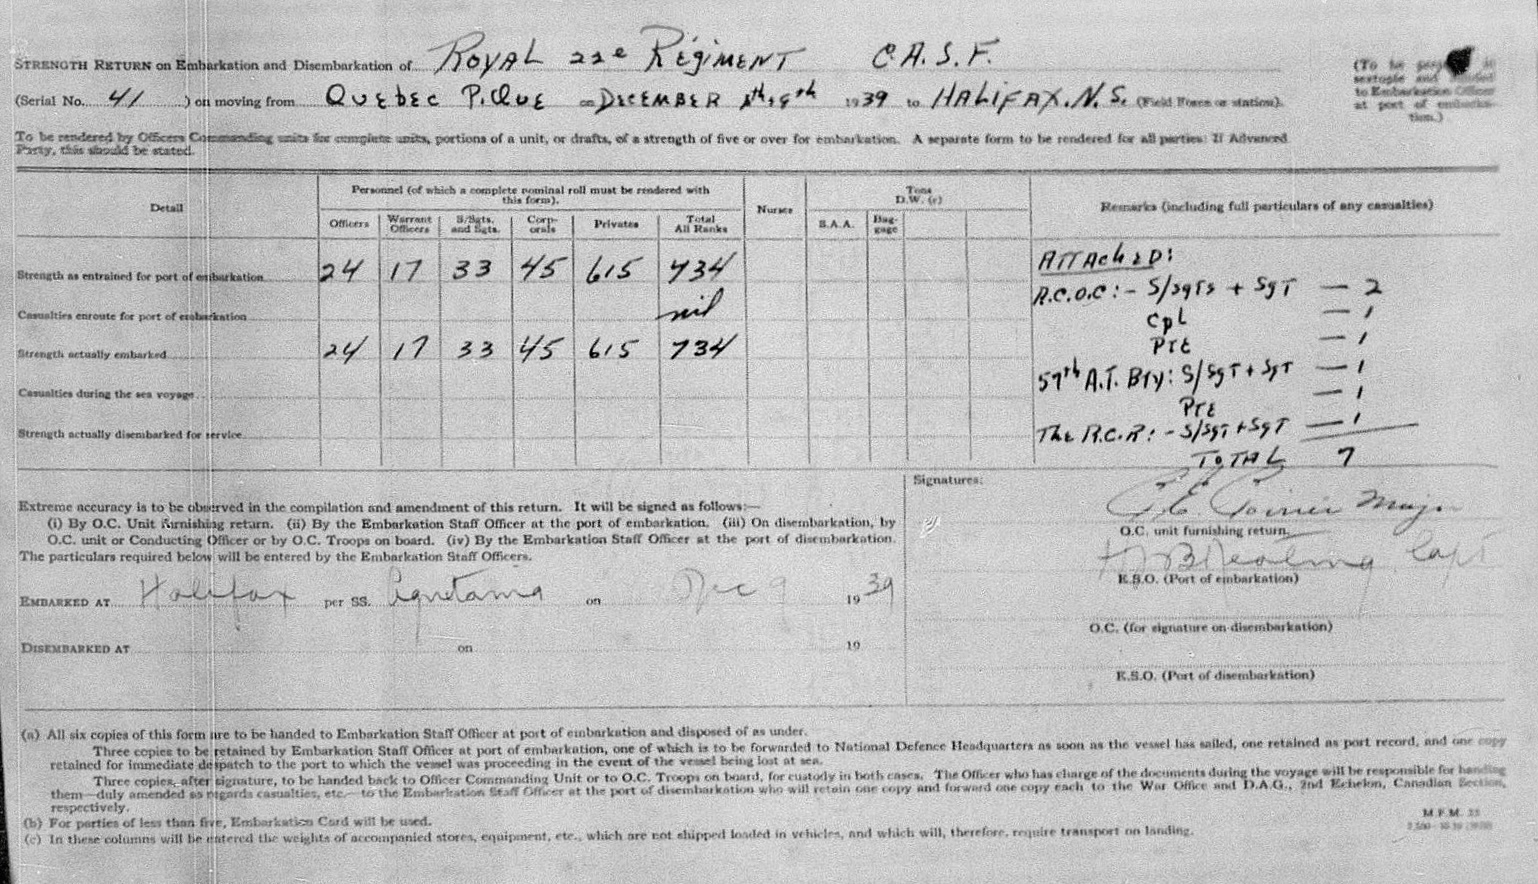 STRENGTH RETURN on Embarkation and Disembarkation of ROYAL 22e RÉGIMENT C.A.S.F.
(Serial No. 41 ) on moving from QUEBEC P.QUE on DECEMBER 8th, 9th 1939 to HALIFAX. N.S. (Field Force or station).
(To be in
sextuple and handed
to Embarkation Officer
at port of embarka-
tion.)
To be rendered by Officers Commanding units for complete units, portions of a unit, or drafts, of a strength of five or over for embarkation. A separate form to be rendered for all parties: If Advanced
Party, this should be stated.
Detail
Personnel (of which a complete nominal roll must be rendered with
this form).
Officers
Warrant
Officers
S/Sgts.
and Sgts.
Corp-
orals
Privates
Total
All Ranks
Nurses
Tons
D.W. (c)
S.A.A.
Bag-
gage
Remarks (including full particulars of any casualties)
Strength as entrained for port of embarkation 24 17 33 45 615 734
Casualties enroute for port of embarkation nil
Strength actually embarked 24 17 33 45 615 734
Casualties during the sea voyage
Strength actually disembarked for service
ATTACHED:
R.C.O.C:- S/Sgts + SgT — 2
CpL — 1
PTE — 1
57th A.T. Bty: S/SgT + SgT — 1
PTE — 1
THE R.C.R:- S/SgT + SgT — 1
TOTAL 7
Extreme accuracy is to be observed in the compilation and amendment of this return. It will be signed as follows:—
(i) By O.C. Unit furnishing return. (ii) By the Embarkation Staff Officer at the port of embarkation. (iii) On disembarkation, by
O.C. unit or Conducting Officer or by O.C. Troops on board. (iv) By the Embarkation Staff Officer at the port of disembarkation.
The particulars required below will be entered by the Embarkation Staff Officers.
EMBARKED AT Halifax per SS. Aquitania on Dec 9 1939
DISEMBARKED AT on 19
Signatures:
Major
O.C. unit furnishing return.
Capt
E.S.O. (Port of embarkation)
O.C. (for signature on disembarkation)
E.S.O. (Port of disembarkation)
(a) All six copies of this form are to be handed to Embarkation Staff Officer at port of embarkation and disposed of as under.
Three copies to be retained by Embarkation Staff Officer at port of embarkation, one of which is to be forwarded to National Defence Headquarters as soon as the vessel has sailed, one retained as port record, and one copy
retained for immediate despatch to the port to which the vessel was proceeding in the event of the vessel being lost at sea.
Three copies, after signature, to be handed back to Officer Commanding Unit or to O.C. Troops on board, for custody in both cases. The Officer who has charge of the documents during the voyage will be responsible for handing
them—duly amended as regards casualties, etc.—to the Embarkation Staff Officer at the port of disembarkation who will retain one copy and forward one copy each to the War Office and D.A.G., 2nd Echelon, Canadian Section,
respectively.
(b) For parties of less than five, Embarkation Card will be used.
(c) In these columns will be entered the weights of accompanied stores, equipment, etc., which are not shipped loaded in vehicles, and which will, therefore, require transport on landing.
M.F.M. 22